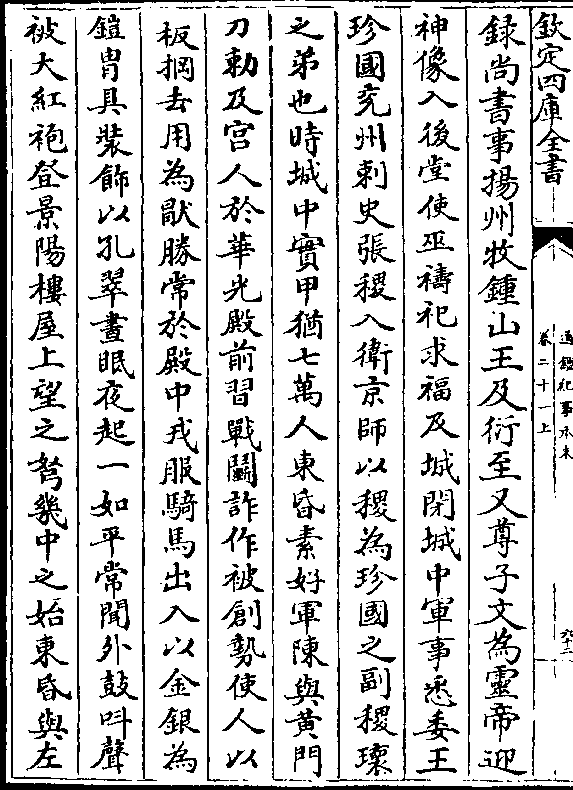 欽定四庫全書
通鑑紀事本末
卷二十一上
六十二
録尚書事揚州牧鍾山王及衍至又尊子文為靈帝迎
神像入後堂使巫禱祀求福及城閉城中軍事悉委王
珍國兗州刺史張稷入衛京師以稷為珍國之副稷瓌
之弟也時城中實甲猶七萬人東昏素好軍陳與黄門
刀勅及宫人於華光殿前習戰鬭詐作被創勢使人以
板掆去用為厭勝常於殿中戎服騎馬出入以金銀為
鎧胄具裝飾以孔翠晝眠夜起一如平常聞外鼓呌聲
被大紅袍登景陽樓屋上望之弩幾中之始東昏與左